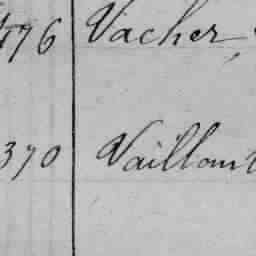 476 Vacher
370 Vaillant